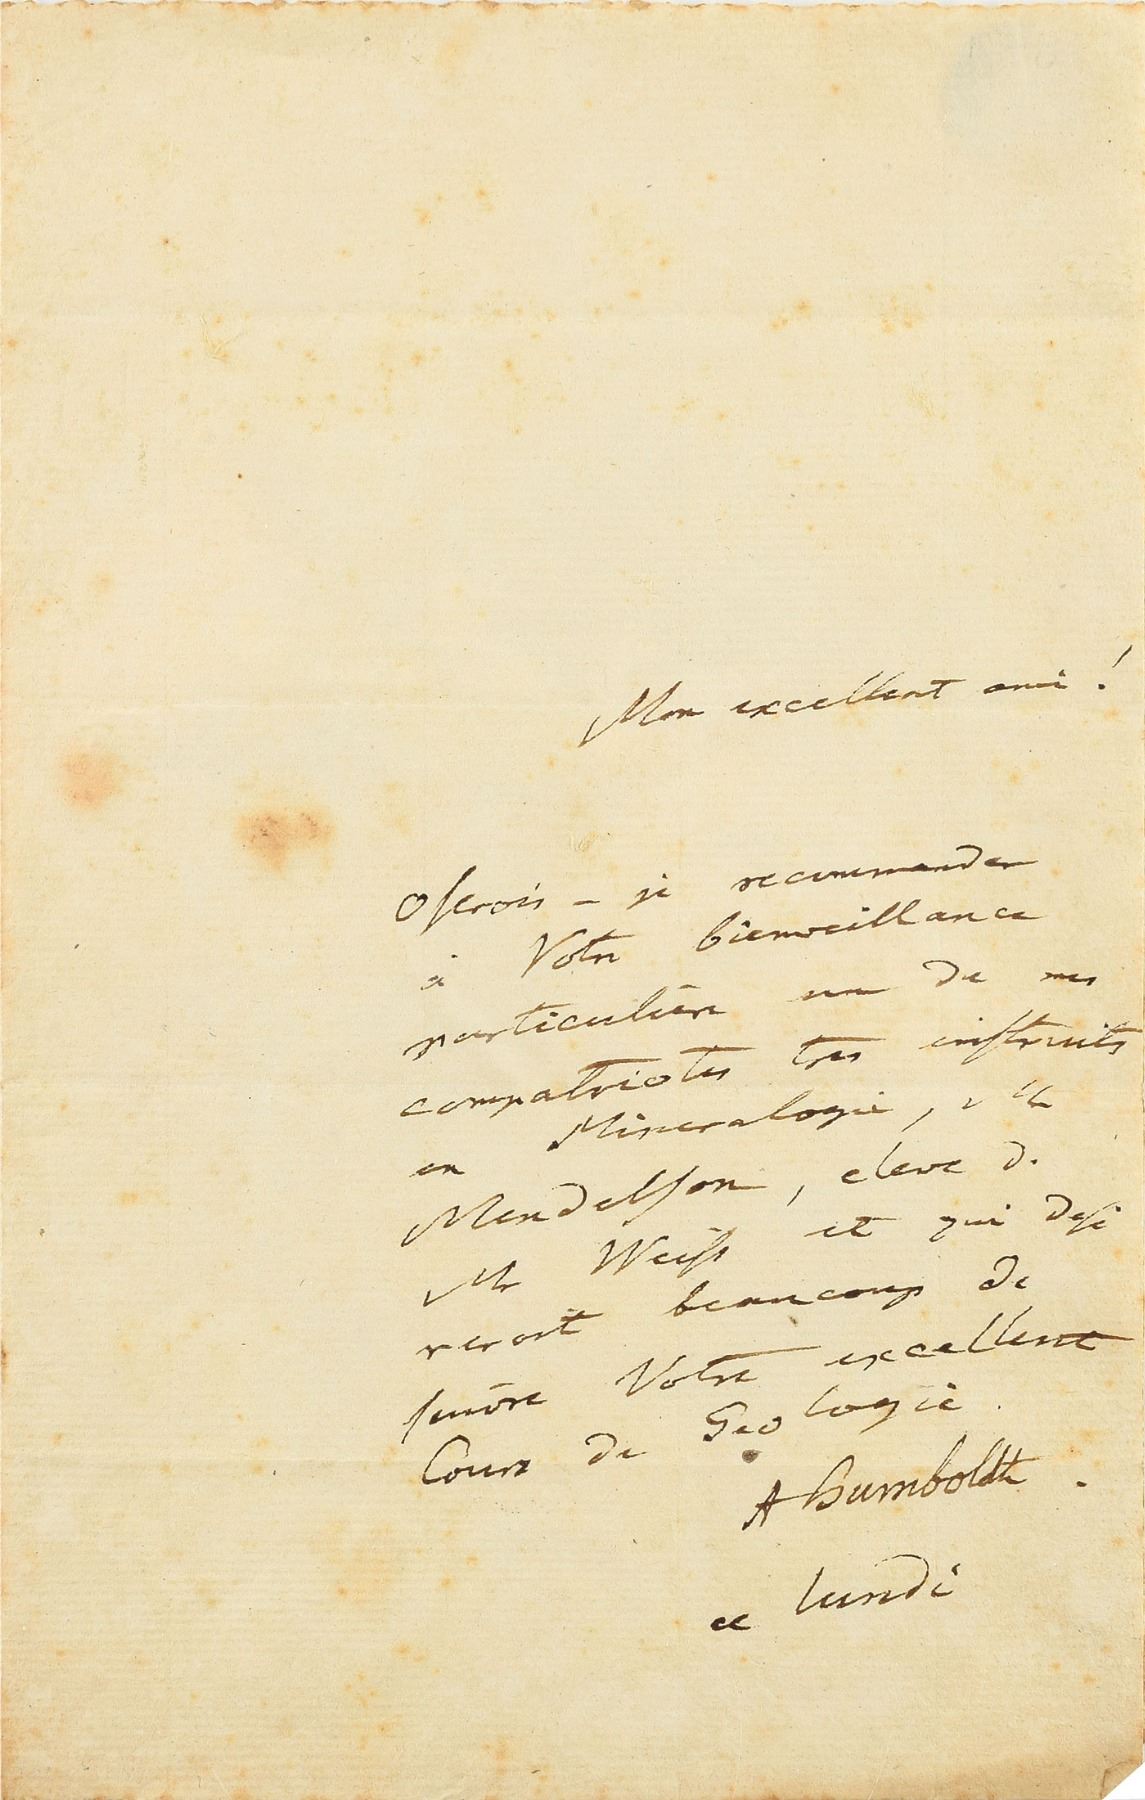 Mon excellent ami !
Oserois - je recommander
à Votre bienveillance
particulière un de mes
compatriotes tres instruits
en Mineralogie, Mr
Mendelson, eleve de
Mr Weiss et qui desi
reroit beaucoup de
suivre Votre excellent
Cours de Geologie.
AHumboldt.
ce lundi